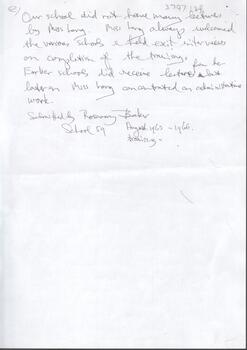 e) Our school did not have many lectures
by Miss Long. Miss Long always welcomed
the various schools & held exit interviews
on completion of the training.
Earlier schools did receive lectures but
later on Miss Long concentrated on administrative
work.
Submitted by Rosemary
School 59 August 1963 - 1966
training.